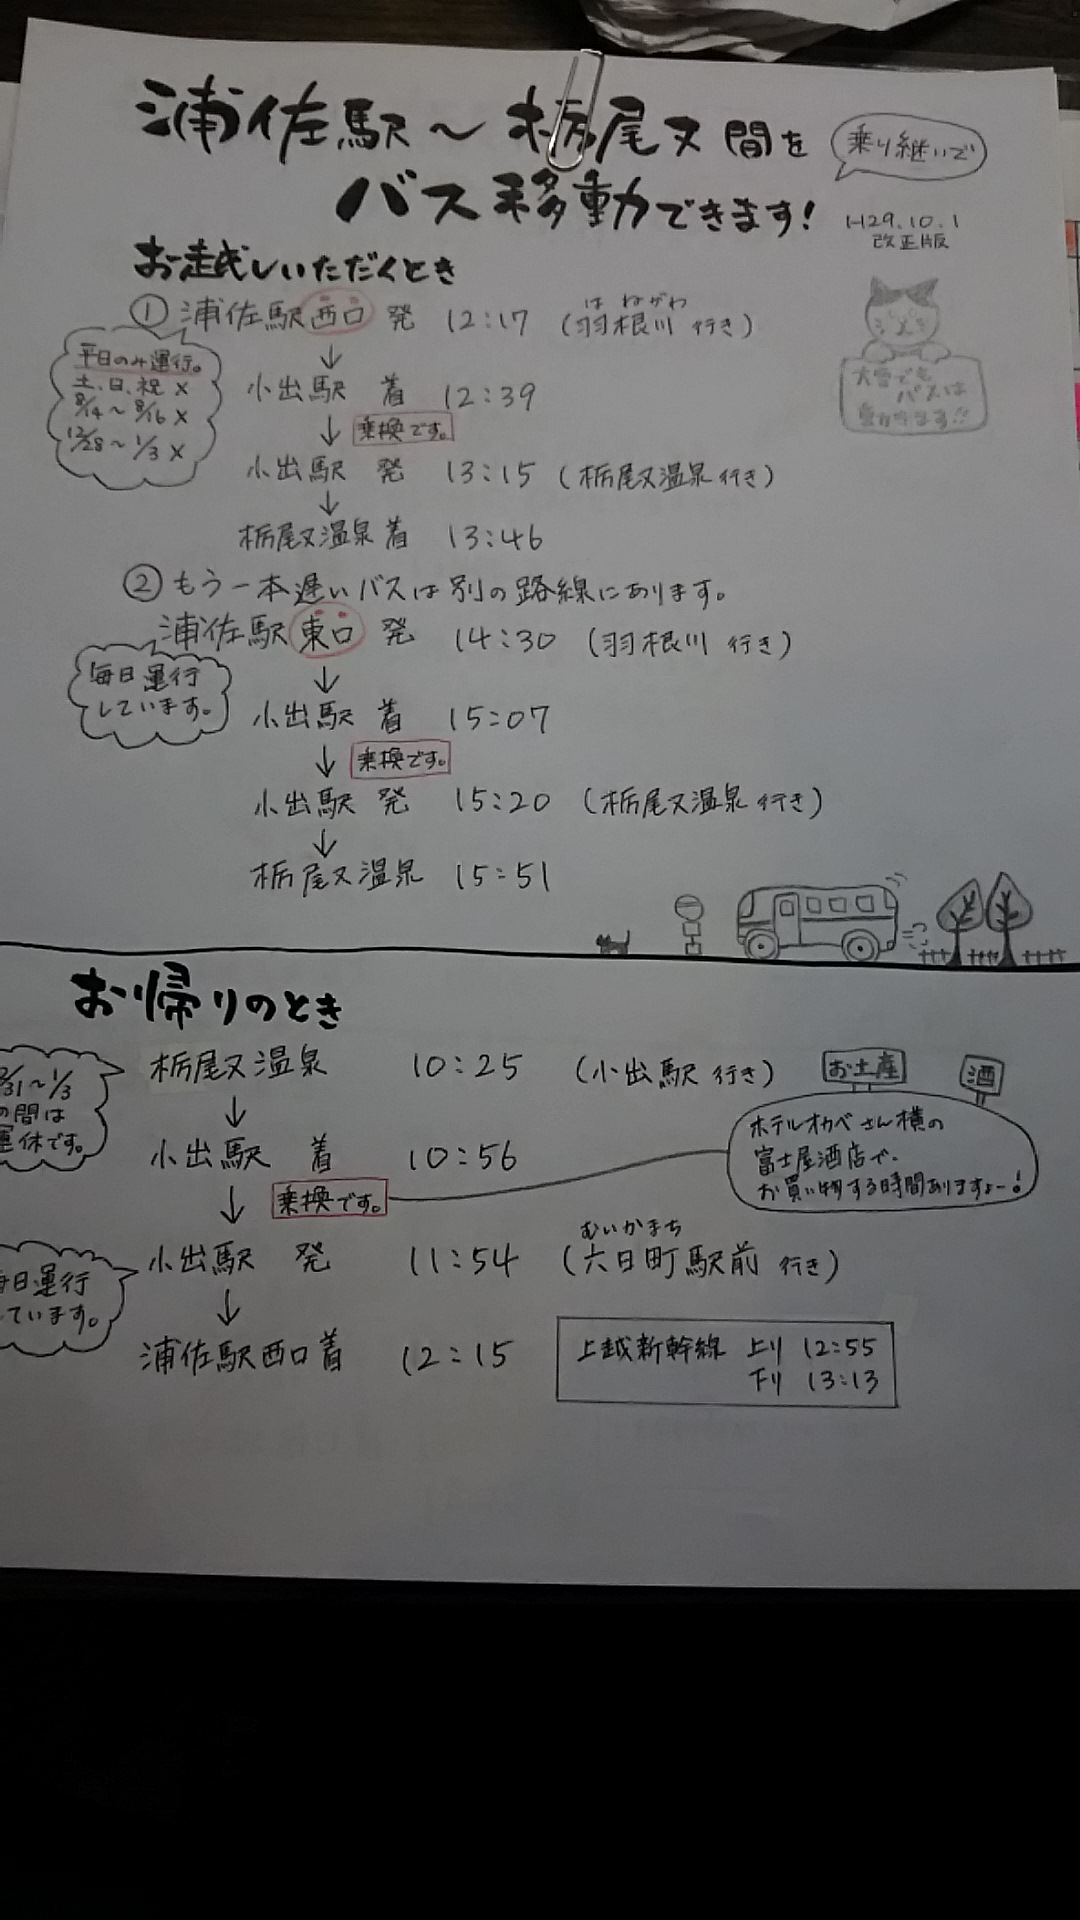 浦佐駅～栃尾又間を
乗り継いで
バス移動できます!
H29.10.1
改正版
お越しいただくとき
① 浦佐駅西口 発 12:17 (羽根川 行き)
はねがわ
平日のみ運行。
土、日、祝 ×
8/14～8/16 ×
12/28～1/3 ×
↓
小出駅 着 12:39
↓ 乗換です。
小出駅 発 13:15 (栃尾又温泉 行き)
↓
栃尾又温泉 着 13:46
大雪でも
バスは
動きます!!
② もう一本遅いバスは別の路線にあります。
浦佐駅東口 発 14:30 (羽根川 行き)
毎日運行
しています。
↓
小出駅 着 15:07
↓ 乗換です。
小出駅 発 15:20 (栃尾又温泉 行き)
↓
栃尾又温泉 15:51
お帰りのとき
栃尾又温泉 10:25 (小出駅 行き)
/31～1/3
の間は
運休です。
↓
小出駅 着 10:56
↓ 乗換です。
お土産
酒
ホテルオカベさん横の
富士屋酒店で、
お買い物する時間ありますよー!
小出駅 発 11:54 (六日町駅前 行き)
むいかまち
毎日運行
ています。
↓
浦佐駅西口着 12:15
上越新幹線 上り 12:55
下り 13:13